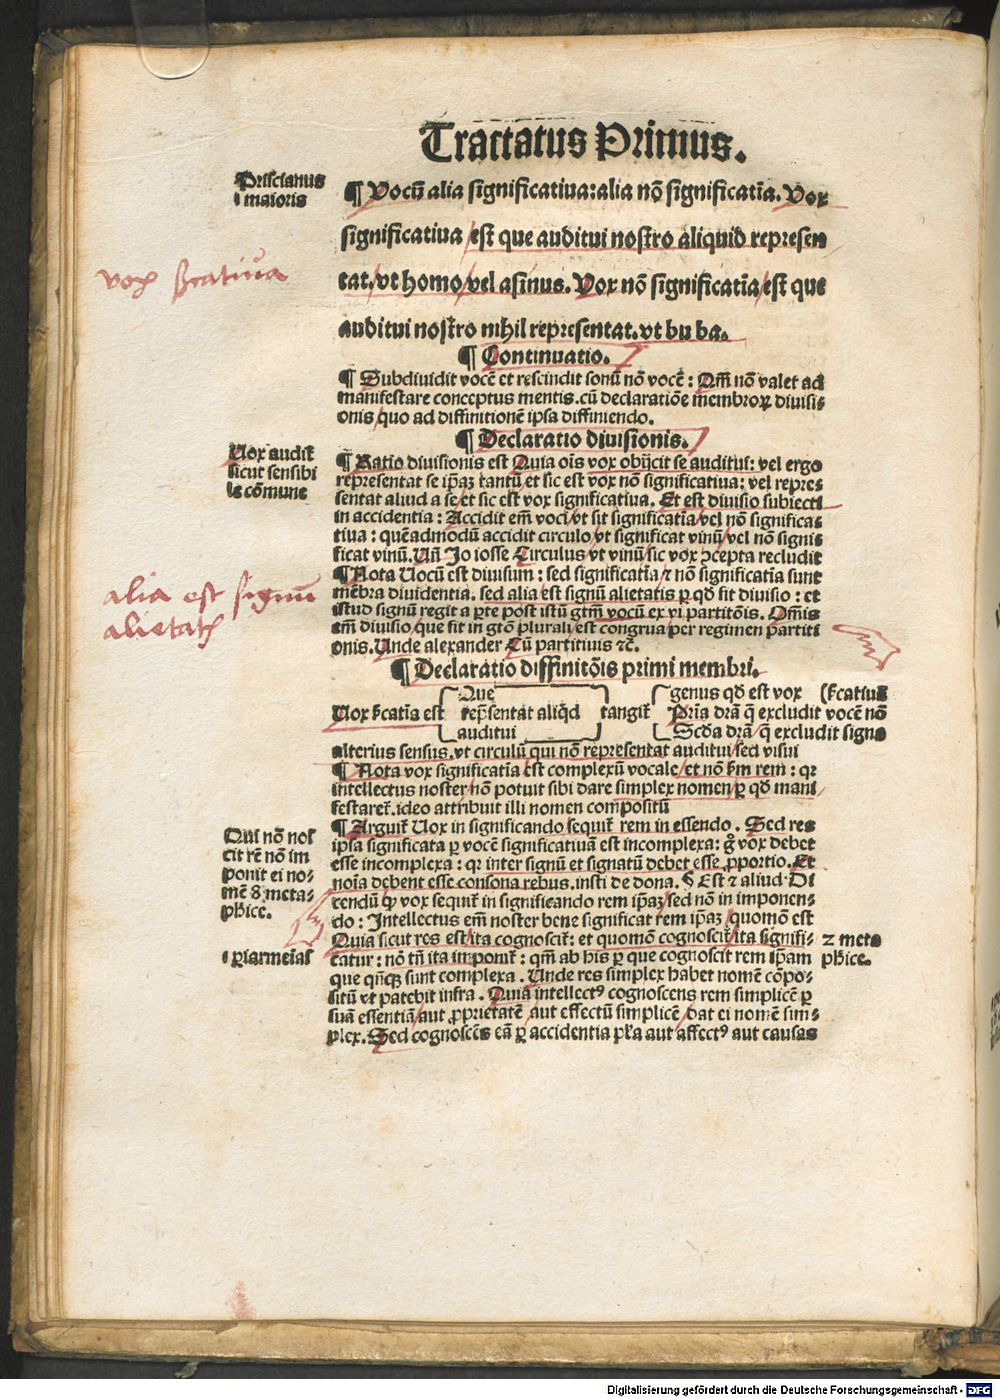 Tractatus Primus.
Priscianus
i maioris
¶ Vocū alia significatiua: alia nō significatīa. Vox
significatiua / est que auditui nostro aliquid represen
tat / vt homo / vel asinus. Vox nō significatīa / est que
auditui nostro nihil representat. vt bu ba.
vox
¶ Continuatio.
¶ Subdiuidit vocē et rescindit sonū nō vocē : nō valet ad
manifestare conceptus mentis. cū declaratiōe membroꝝ diuisi⸗
onis / quo ad diffinitionē ipsa diffiniendo.
¶ Declaratio diuisionis.
Vox audit̄
sicut sensibi
le cōmune
¶ Ratio diuisionis est Quia oīs vox obijcit se auditui: vel ergo
representat se ip̄aꝫ tantū / et sic est vox nō significatiua: vel repres⸗
sentat aliud a se / et sic est vox significatiua. Et est diuisio subiecti
in accidentia : Accidit em̄ voci / vt sit significatīa / vel nō significa⸗
tiua : quēadmodū accidit circulo / vt significat vinū / vel nō signis⸗
ficat vinū. Vn̄ Io iosse Circulus / vt vinū / sic vox ↄcepta recludit
¶ Nota Vocū est diuisum : sed significatīa ⁊ nō significatīa sunt
mēbra diuidentia. sed alia / est signū alietatis ꝑ qd̄ fit diuisio : et
istud signū regit a ꝑte post istū gtm̄ vocū ex vi partitōis. Om̄is
em̄ diuisio / que fit in gtō plurali / est congrua / per regimen partiti
onis. Vnde alexander Cū partitiuis ⁊c̄.
alia est signū
¶ Declaratio diffinitōis primi membri.
Vox s̄catīa est
Que
rep̄sentat aliq̄d
auditui
tangit̄
genus qd̄ est vox (s̄catiua
Pria drā q̄ excludit vocē nō
Scd̄a drā / q̄ excludit signa
alterius sensus. vt circulū qui nō representat auditui / sed visui
¶ Nota vox significatīa est complexū vocale / et nō s̄m rem : qꝛ
intellectus noster nō potuit sibi dare simplex nomen / ꝑ qd̄ mani
festaret̄. ideo attribuit illi nomen compositū
Qui nō nos
cit rē nō im
ponit ei no⸗
mē 8 meta⸗
ph̄ice.
¶ Arguit̄ Vox in significando sequit̄ rem in essendo. Sed res
ipsa significata ꝑ vocē significatiuā est incomplexa: g̊ vox debet
esse incomplexa : qꝛ inter signū et signatū debet esse ꝓportio. Et
noīa debent esse consona rebus. insti de dona. § Est ⁊ aliud Di
cendū ꝙ vox sequit̄ in significando rem ip̄aꝫ / sed nō in imponen⸗
do : Intellectus em̄ noster bene significat rem ip̄aꝫ / quomō est
Quia sicut res est / ita cognoscit̄: et quomō cognoscit̄ / ita signifi⸗
catur: nō tn̄ ita imponit̄ : qm̄ ab his ꝑ que cognoscit rem ip̄am
que qn̄qꝫ sunt complexa. Vnde res simplex habet nomē cōpo⸗
sitū vt patebit infra. Quia intellectꝰ cognoscens rem simplicē ꝑ
suā essentiā / aut ꝓprietatē aut effectū simplicē / dat ei nomē sim⸗
plex. Sed cognoscēs eā ꝑ accidentia aut affectꝰ aut causas
2 meta
ph̄ice.
Digitalisierung gefördert durch die Deutsche Forschungsgemeinschaft - DFG